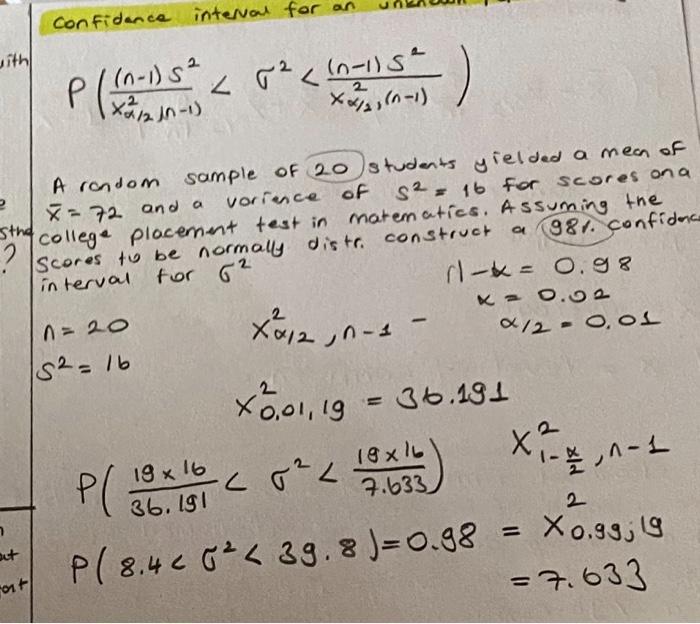 confidence interval for an
with
P( (n-1) S² / X²α/2,(n-1) < σ² < (n-1) S² / X²α/2,(n-1) )
A random sample of 20 students yielded a mean of
x̄ = 72 and a varience of S² = 16 for scores on a
college placement test in matematics. Assuming the
scores to be normally distr. construct a 98%. confidence
interval for σ²
?
1-α = 0.98
α = 0.02
α/2 = 0.01
n = 20
X²α/2, n-1 -
S² = 16
X²0.01, 19 = 36.191
P( 19 x 16 / 36.191 < σ² < 19 x 16 / 7.633 )
X²1-α/2, n-1
P( 8.4 < σ² < 39.8 ) = 0.98
= X²0.99; 19
= 7.633